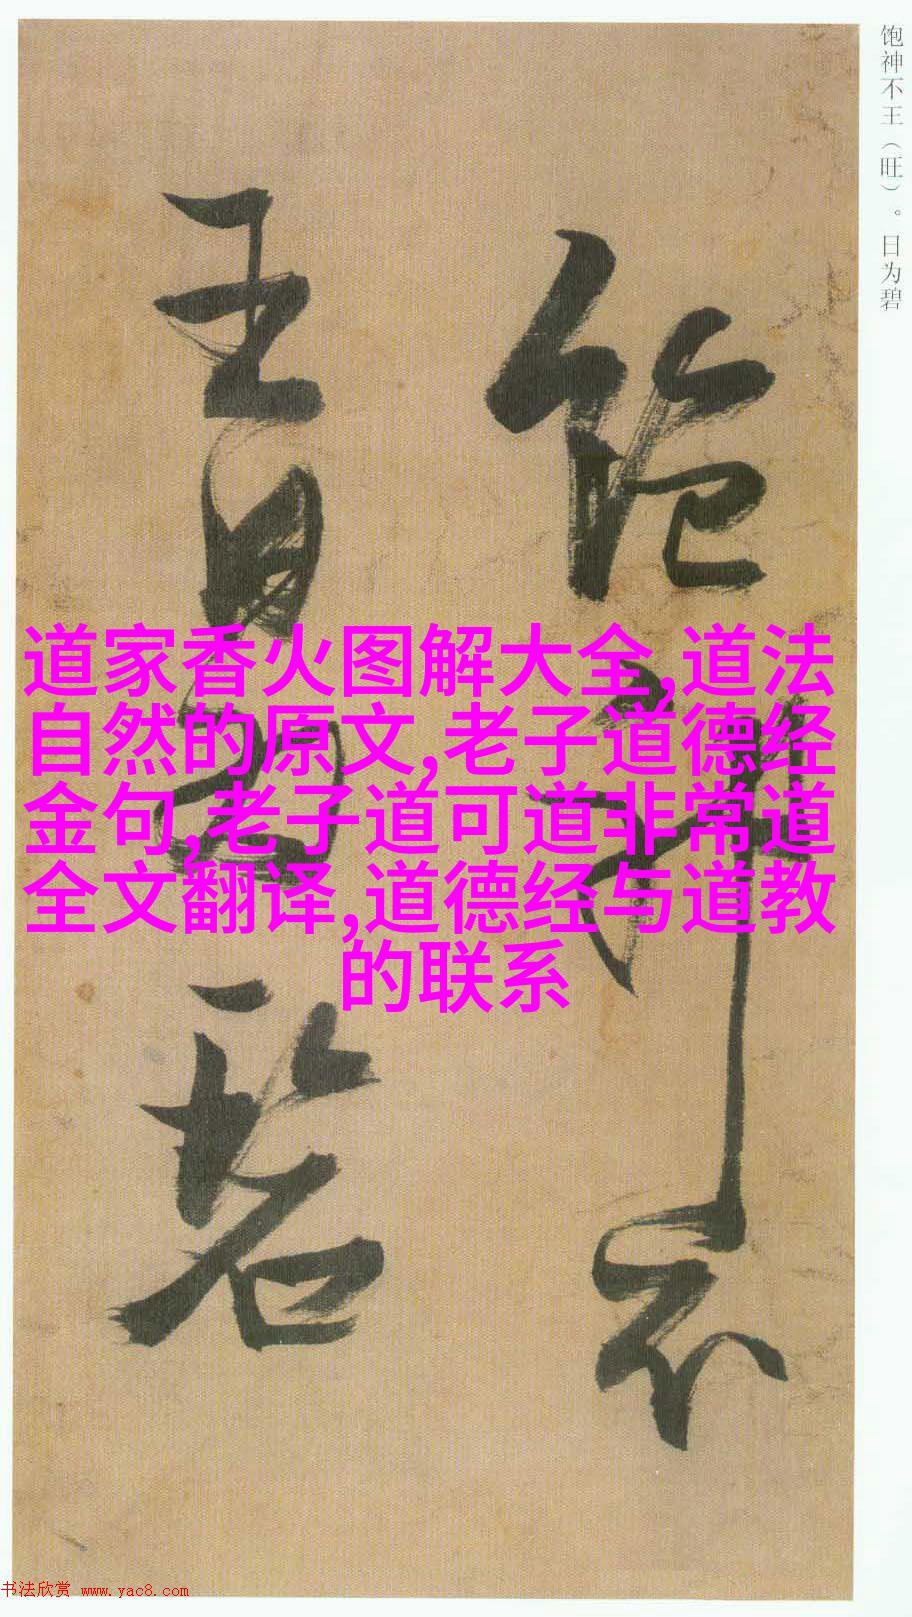 饱神不王（旺）。日为碧
饱神不
王日为碧
道家香火图解大全,道法
自然的原文,老子道德经
金句,老子道可道非常道
全文翻译,道德经与道教
的联系
书法欣赏 www.yac8.com